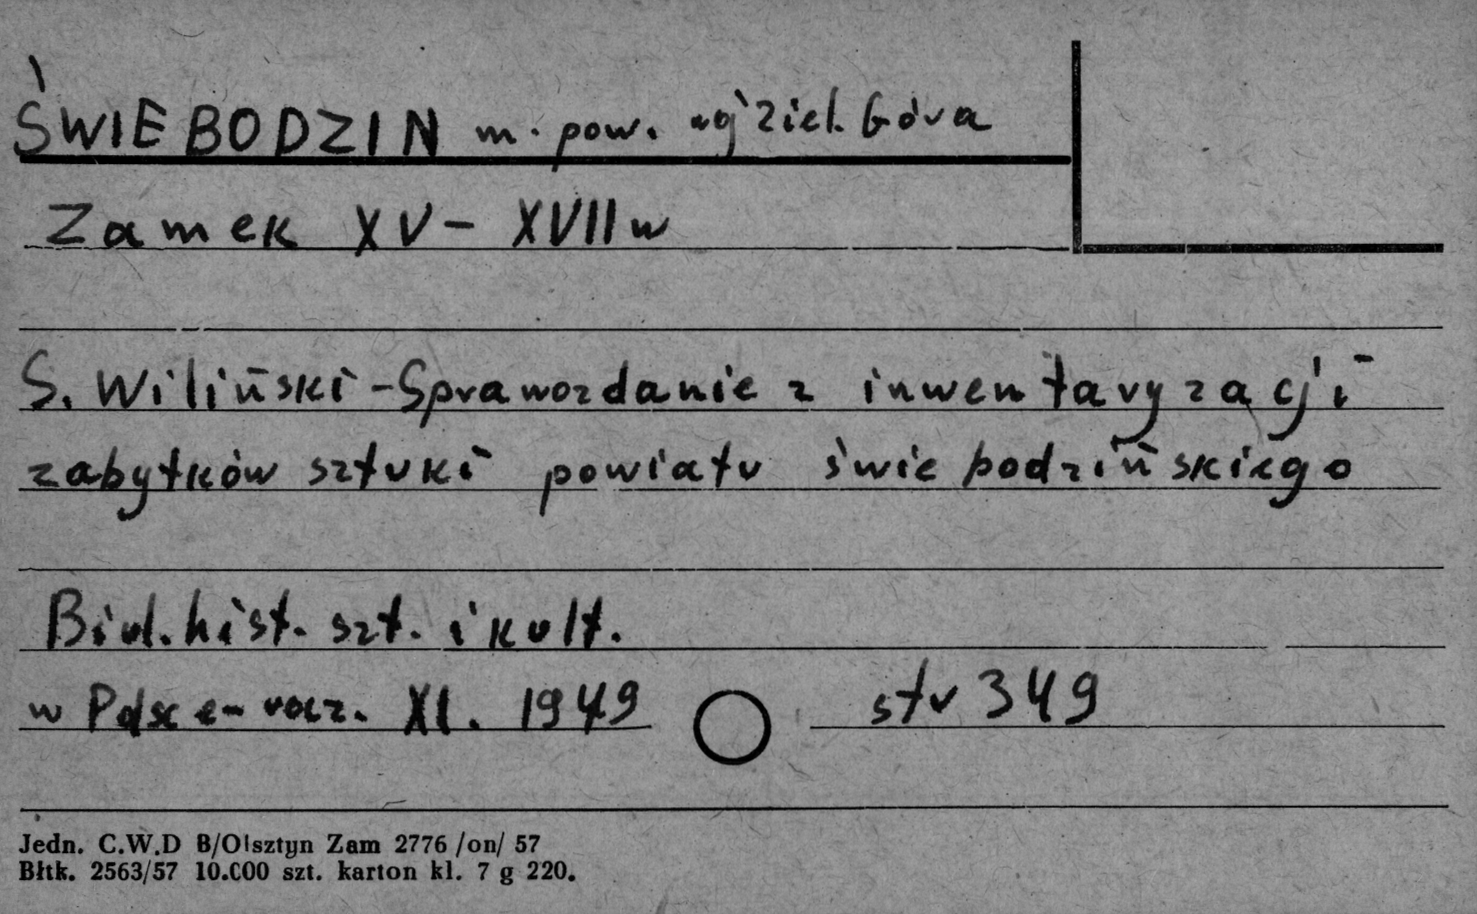 ŚWIEBODZIN m. pow. woj Ziel. Góra
Zamek XV – XVII w
S. Wiliński – Sprawozdanie z inwentaryzacji
zabytków sztuki powiatu świebodzińskiego
Biul. hist. szt. i kult.
w Polsce – rocz. XI. 1949 str 349
Jedn. C.W.D B/Olsztyn Zam 2776 /on/ 57
Błtk. 2563/57 10.000 szt. karton kl. 7 g 220.